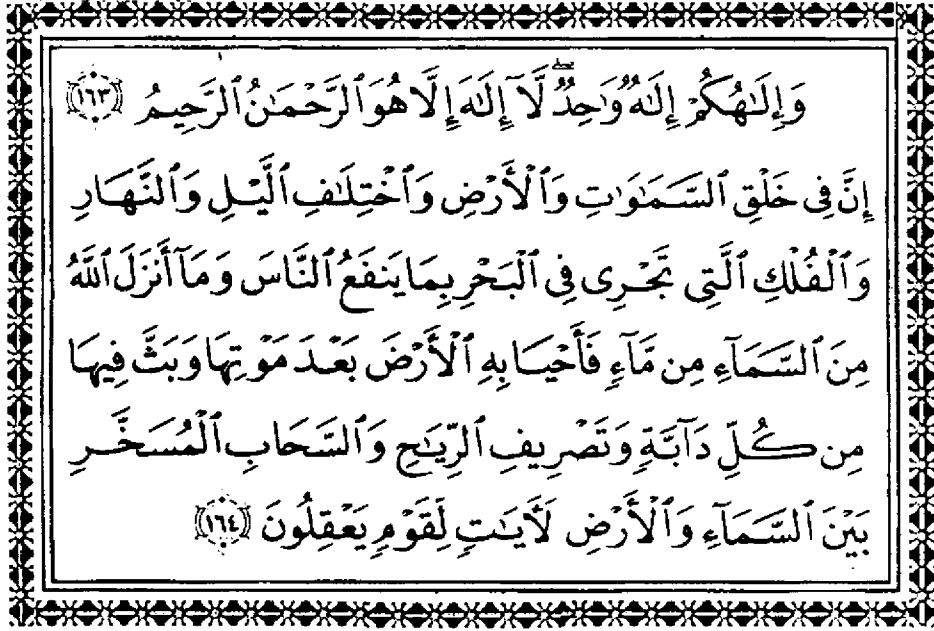 وَإِلَٰهُكُمْ إِلَٰهٌ وَٰحِدٌ ۖ لَّآ إِلَٰهَ إِلَّا هُوَ ٱلرَّحْمَٰنُ ٱلرَّحِيمُ ﴿١٦٣﴾
إِنَّ فِى خَلْقِ ٱلسَّمَٰوَٰتِ وَٱلْأَرْضِ وَٱخْتِلَٰفِ ٱلَّيْلِ وَٱلنَّهَارِ
وَٱلْفُلْكِ ٱلَّتِى تَجْرِى فِى ٱلْبَحْرِ بِمَا يَنفَعُ ٱلنَّاسَ وَمَآ أَنزَلَ ٱللَّهُ
مِنَ ٱلسَّمَآءِ مِن مَّآءٍ فَأَحْيَا بِهِ ٱلْأَرْضَ بَعْدَ مَوْتِهَا وَبَثَّ فِيهَا
مِن كُلِّ دَآبَّةٍ وَتَصْرِيفِ ٱلرِّيَٰحِ وَٱلسَّحَابِ ٱلْمُسَخَّرِ
بَيْنَ ٱلسَّمَآءِ وَٱلْأَرْضِ لَءَايَٰتٍ لِّقَوْمٍ يَعْقِلُونَ ﴿١٦٤﴾